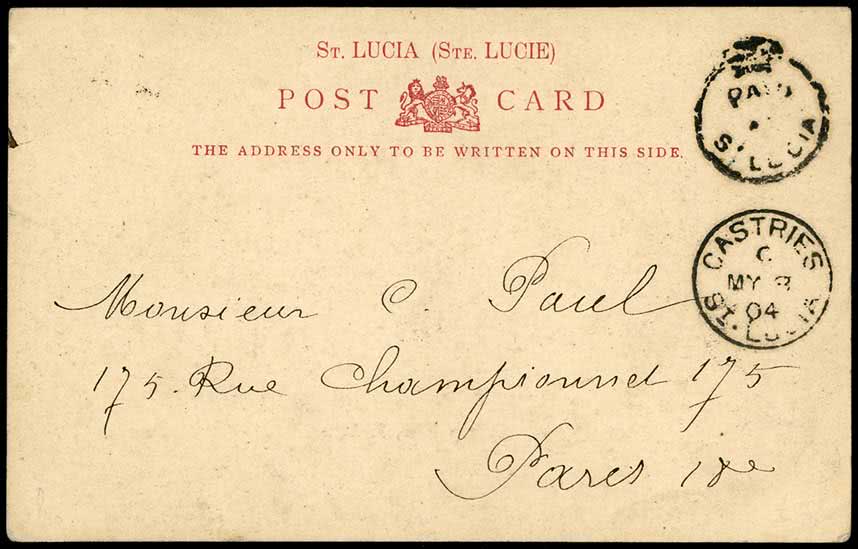 St. LUCIA (Ste. LUCIE)
POST CARD
THE ADDRESS ONLY TO BE WRITTEN ON THIS SIDE.
PAID
St. LUCIA
CASTRIES
C
MY 3
04
St. LUCIA
Monsieur C. Paul
175. Rue Championnet 175
Paris 18e